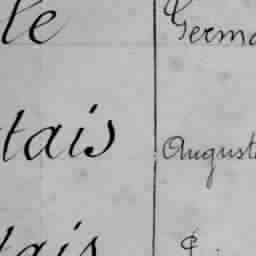 le Germa
tais August
tais